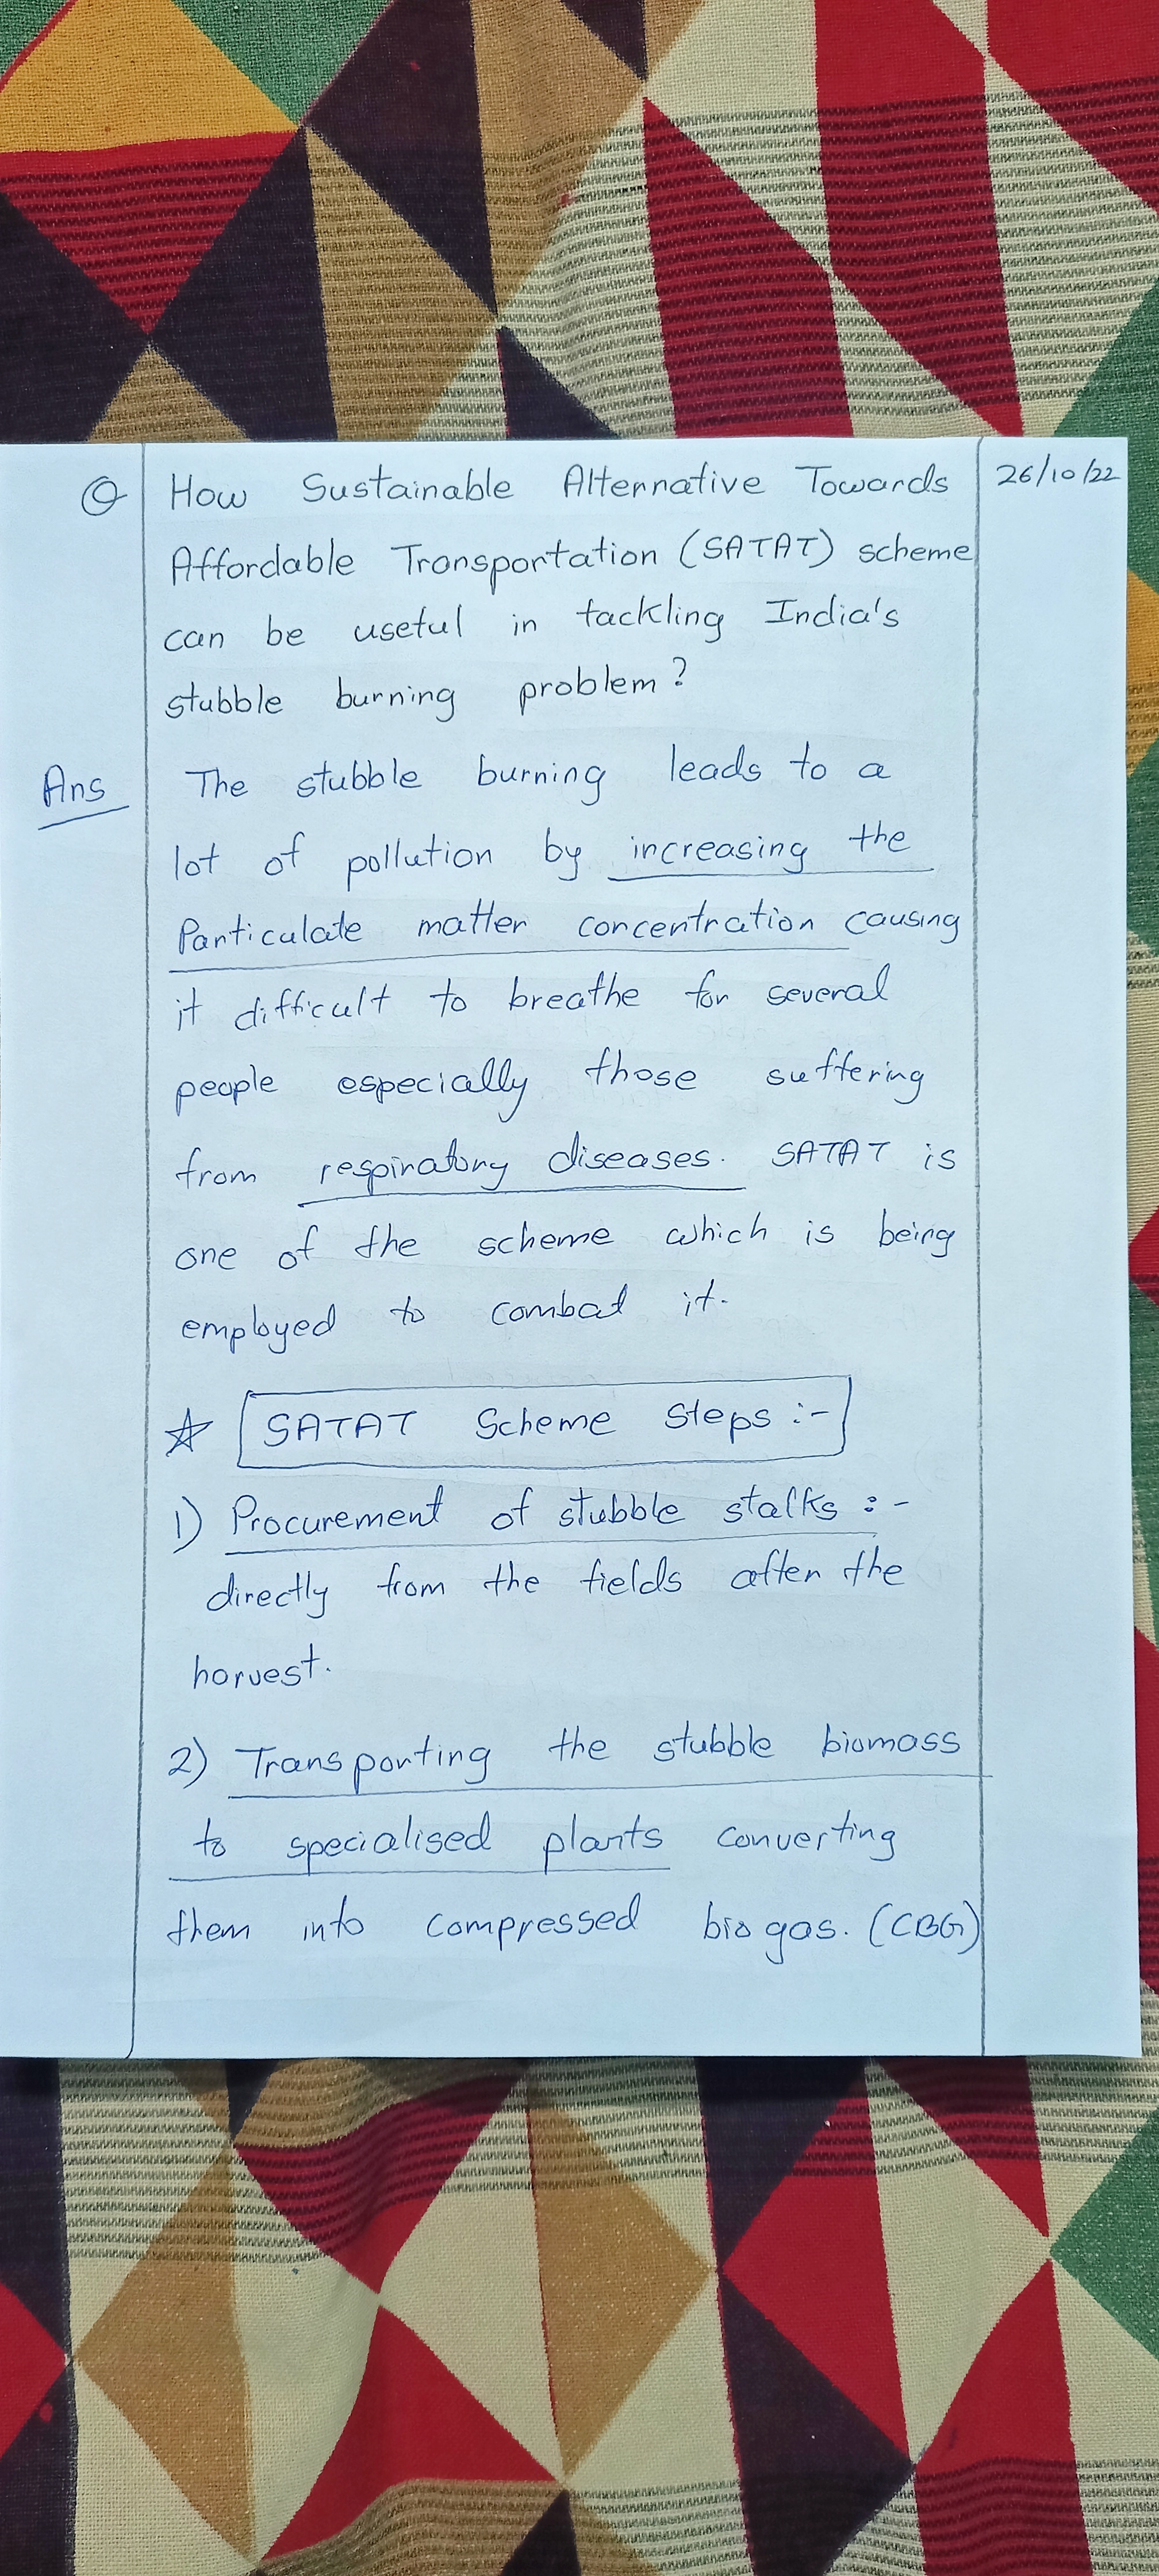 Q How Sustainable Alternative Towards 26/10/22
Affordable Transportation (SATAT) scheme
can be useful in tackling India's
stubble burning problem?
Ans The stubble burning leads to a
lot of pollution by increasing the
Particulate matter concentration causing
it difficult to breathe for several
people especially those suffering
from respiratory diseases. SATAT is
one of the scheme which is being
employed to combat it.
☆ SATAT Scheme Steps :-
1) Procurement of stubble stalks :-
directly from the fields after the
harvest.
2) Transporting the stubble biomass
to specialised plants converting
them into compressed bio gas. (CBG)